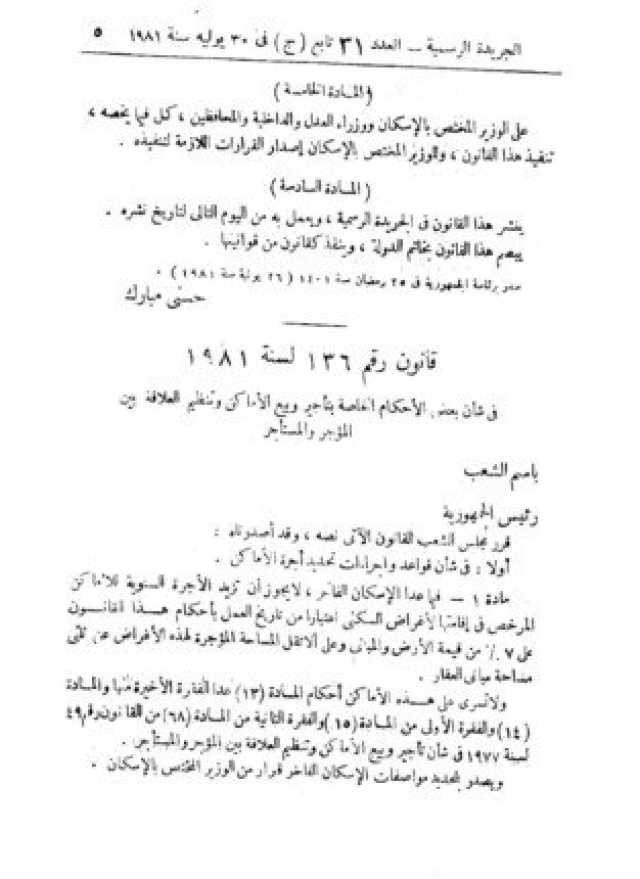 الجريدة الرسمية – العدد ٣١ تابع (ج) فى ٣٠ يوليه سنة ١٩٨١ ٥
(المادة الخامسة)
على الوزير المختص بالإسكان ووزراء العدل والداخلية والمحافظين ، كل فيما يخصه ،
تنفيذ هذا القانون ، والوزير المختص بالإسكان إصدار القرارات اللازمة لتنفيذه .
(المادة السادسة)
ينشر هذا القانون فى الجريدة الرسمية ، ويعمل به من اليوم التالى لتاريخ نشره .
يبصم هذا القانون بخاتم الدولة ، وينفذ كقانون من قوانينها .
صدر برئاسة الجمهورية فى ٢٥ رمضان سنة ١٤٠١ (٢٦ يولية سنة ١٩٨١) .
حسنى مبارك
قانون رقم ١٣٦ لسنة ١٩٨١
فى شأن بعض الأحكام الخاصة بتأجير وبيع الأماكن وتنظيم العلاقة بين
المؤجر والمستأجر
باسم الشعب
رئيس الجمهورية
قرر مجلس الشعب القانون الآتى نصه ، وقد أصدرناه :
أولا : فى شأن قواعد وإجراءات تحديد أجرة الأماكن .
مادة ١ – فيما عدا الإسكان الفاخر ، لايجوز أن تزيد الأجرة السنوية للأماكن
المرخص فى إقامتها لأغراض السكنى اعتبارا من تاريخ العمل بأحكام هذا القانون
على ٧٪ من قيمة الأرض والمبانى وعلى ألا تقل المساحة المؤجرة لهذه الأغراض عن ثلثى
مساحة مبانى العقار .
ولاتسرى على هذه الأماكن أحكام المادة (١٣) عدا الفقرة الأخيرة منها والمادة
(١٤) والفقرة الأولى من المادة (١٥) والفقرة الثانية من المادة (٦٨) من القانون رقم ٤٩
لسنة ١٩٧٧ فى شأن تأجير وبيع الأماكن وتنظيم العلاقة بين المؤجر والمستأجر .
ويصدر بتحديد مواصفات الإسكان الفاخر قرار من الوزير المختص بالإسكان .